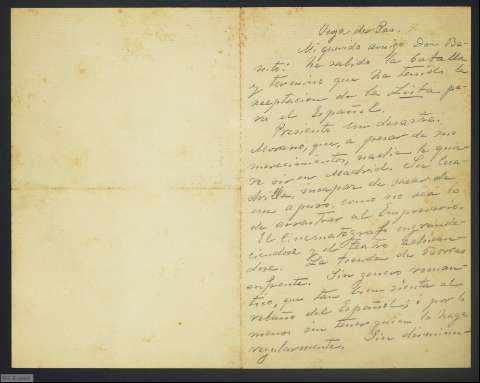 Vega de Pas.
Mi querido amigo Don Be-
nito: he sabido la batalla
y teremine que ha tenido la
aceptacion de la Lista pa-
ra el Español.
Presiento un desastre.
Morano, que, a pesar de sus
merecimientos, nadie le quie-
re oir en Madrid. Su Cua-
drilla, incapaz de sacar de
un apuro, como no sea lo
de arrastrar al Empresario.
El Cinematógrafo engrande-
ciendose y el teatro achican-
dose. La tienda de Borras
enfrente. Sin genero roman-
tico, que tan bien sienta al
retablo del Español, ó por lo
menos sin tener quien lo haga
regularmente. Sin disminu-